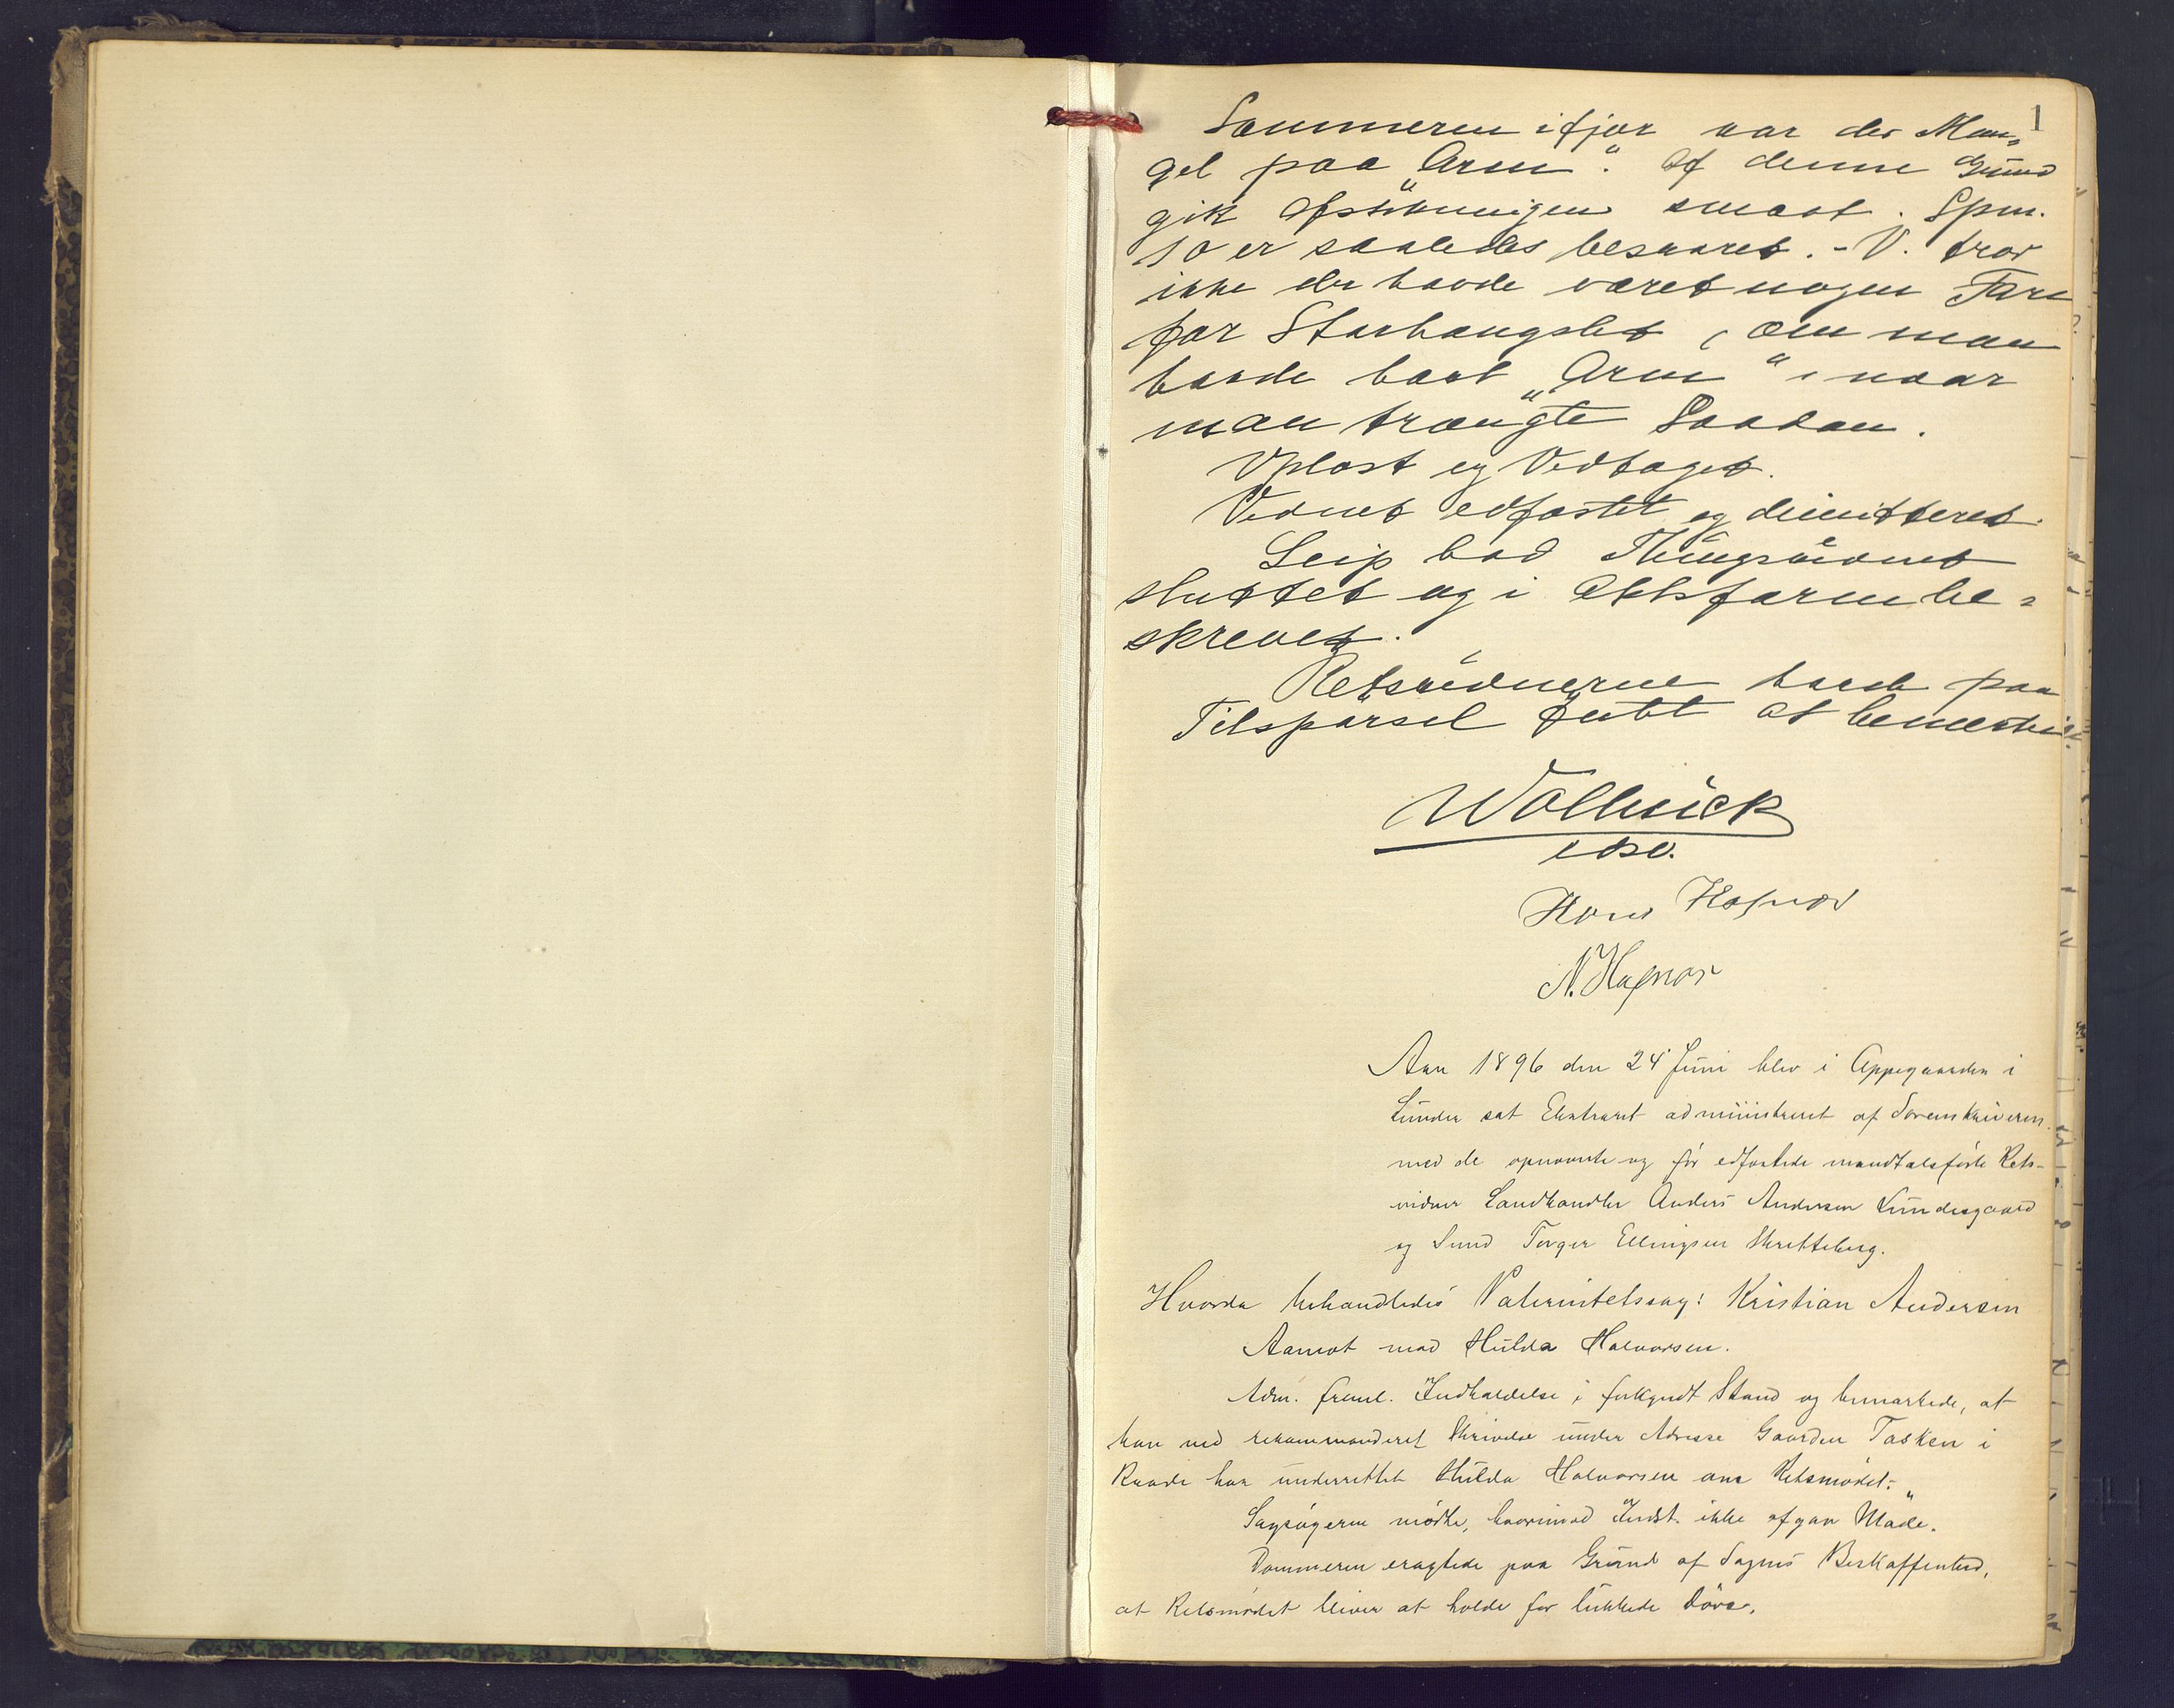 1
Sommeren ifjor var der Man-
gel paa "Arm". Af denne Grund
gik Afstivningen smaat. Spm.
10 er saaledes besvaret. - V. tror
ikke der havde været nogen Fare
for Storhængslet, om man
havde havt "Arm", naar
man trængte Saadan.
Oplæst og Vedtaget.
Vidnet edfæstet og dimitteret.
Leip bad Thingsvidnet
sluttet og i Aktsform be-
skrevet.
Retsvidnerne havde paa
Tilspørsel Intet at bemærke.
Wollnick
edsv.
Hans Hafnor
N. Hafnor
Aar 1896 den 24 Juni blev i Oppegaarden i
Lunder sat Ekstraret administreret af Sorenskriveren
med de opnævnte og før edfæstede mandtalsførte Rets-
vidner Landhandler Anders Andersen Lundesgaard
og Lund Torger Ellingsen Skretteberg.
Hvorda behandledes Paternitetssag: Kristian Andersen
Aamot mod Hulda Halvorsen.
Adm. freml. Indkaldelse i forkyndt Stand og bemærkede, at
han ved rekommanderet Skrivelse under Adresse Gaarden Tasken i
Raade har underrettet Hulda Halvorsen om Retsmødet.
Sagsøgeren mødte, hvorimod Indst. ikke afgav Møde.
Dommeren eragtede paa Grund af Sagens Beskaffenhed,
at Retsmødet bliver at holde for lukkede Døre.